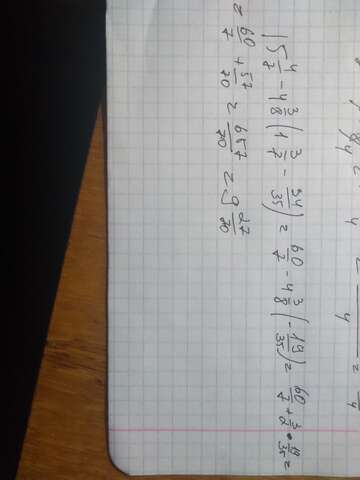 15 4/7 - 4 3/8 (1 3/7 - 54/35) = 60/7 - 4 3/8 (-19/35) = 60/7 + 3/8 • 19/35 =
= 60/7 + 57/70 = 657/70 = 9 27/70